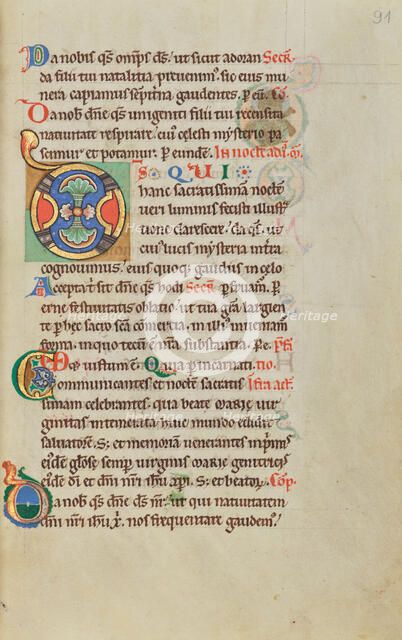 91
Da nobis qs omnps ds ut sicut adoran Secr
da filii tui natalitia preuenim' sic eius mu
nera capiamus sepitna gaudentes. p eu. Co
Da nobis dne qs unigeniti filii tui recensita
natiuitate respirare cui' celesti mysterio pa
scimur et potamur. p eunde. In nocte ad i. m.
Ds QUI
hanc sacratissima nocte
ueri luminis fecisti illust
tione clarescere da qs ut
cui' lucis mysteria in terra
cognouimus eius quoq gaudiis in celo
Accepta t sit dne qs hodi Secr pfruam'. p
erne festiuitatis oblatio ut tua gra largien
te p hec sacro sca comertia in illi' inueniam
forma in quo tecu e nra substantia. Pe. Pfi
UD Quia p incarnati. tio.
Communicantes et nocte sacratis Infra act.
simam celebrantes qua beate marie uir
ginitas intemerata huic mundo edidit
saluatore. S; et memoria uenerantes inprimis
eide gliose semp uirginis marie genetrici
eide di et dni nri ihu xpi. S; et beator. Cop.
Da nobis qs dne ds nr ut qui natiuitatem
dni nri ihu x. nos frequentare gaudem'
Heritage
Heritage
Heritage